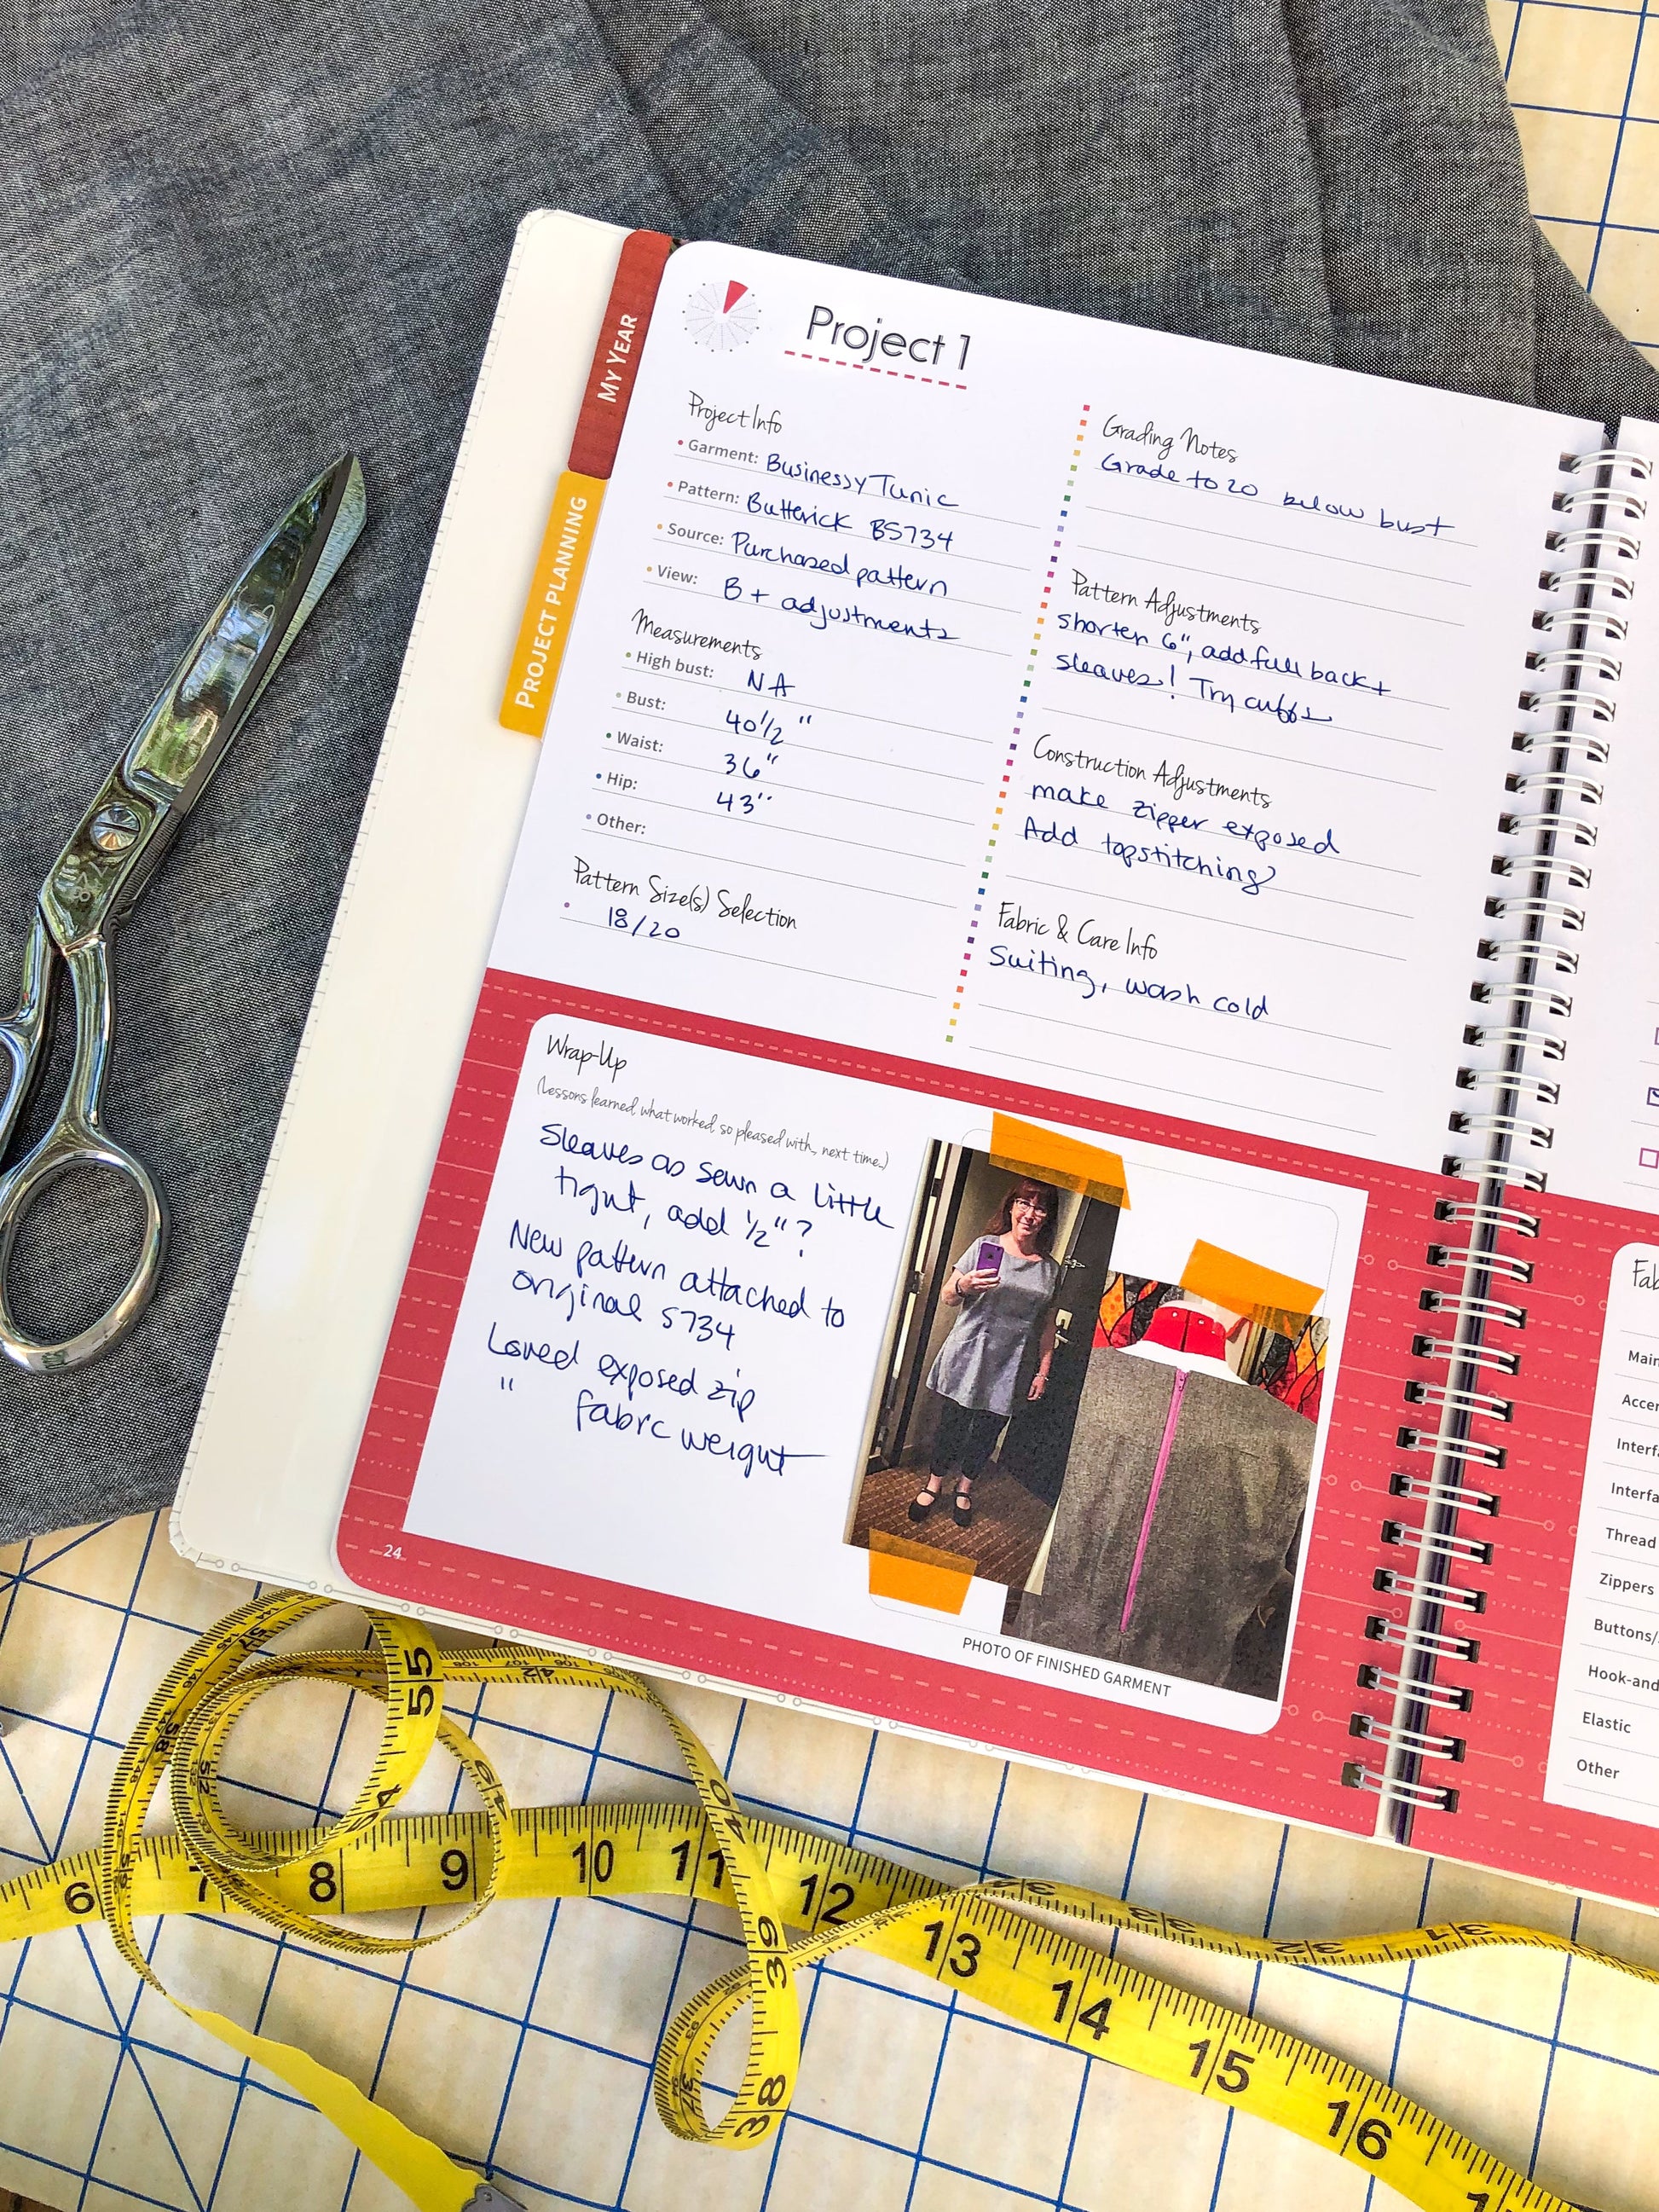 MY YEAR
PROJECT PLANNING
Project 1
Project Info
Garment: Businessy Tunic
Pattern: Butterick B5734
Source: Purchased pattern
View: B + adjustments
Measurements
High bust: NA
Bust: 40 1/2"
Waist: 36"
Hip: 43"
Other:
Pattern Size(s) Selection
18/20
Grading Notes
Grade to 20 below bust
Pattern Adjustments
shorten 6", add full back +
sleaves! Try cuffs
Construction Adjustments
make zipper exposed
Add topstitching
Fabric & Care Info
Suiting, wash cold
Wrap-Up
(Lessons learned, what worked, so pleased with, next time..)
Sleaves as sewn a little
tight, add 1/2"?
New pattern attached to
original 5734
Loved exposed zip
" fabrc weight
PHOTO OF FINISHED GARMENT
24
Fab
Main
Accen
Interfa
Interfa
Thread
Zippers
Buttons/
Hook-and
Elastic
Other
55
54
42
58
52
40
39
38
37
33
32
31
6
7
8
9
10
11
12
13
14
15
16